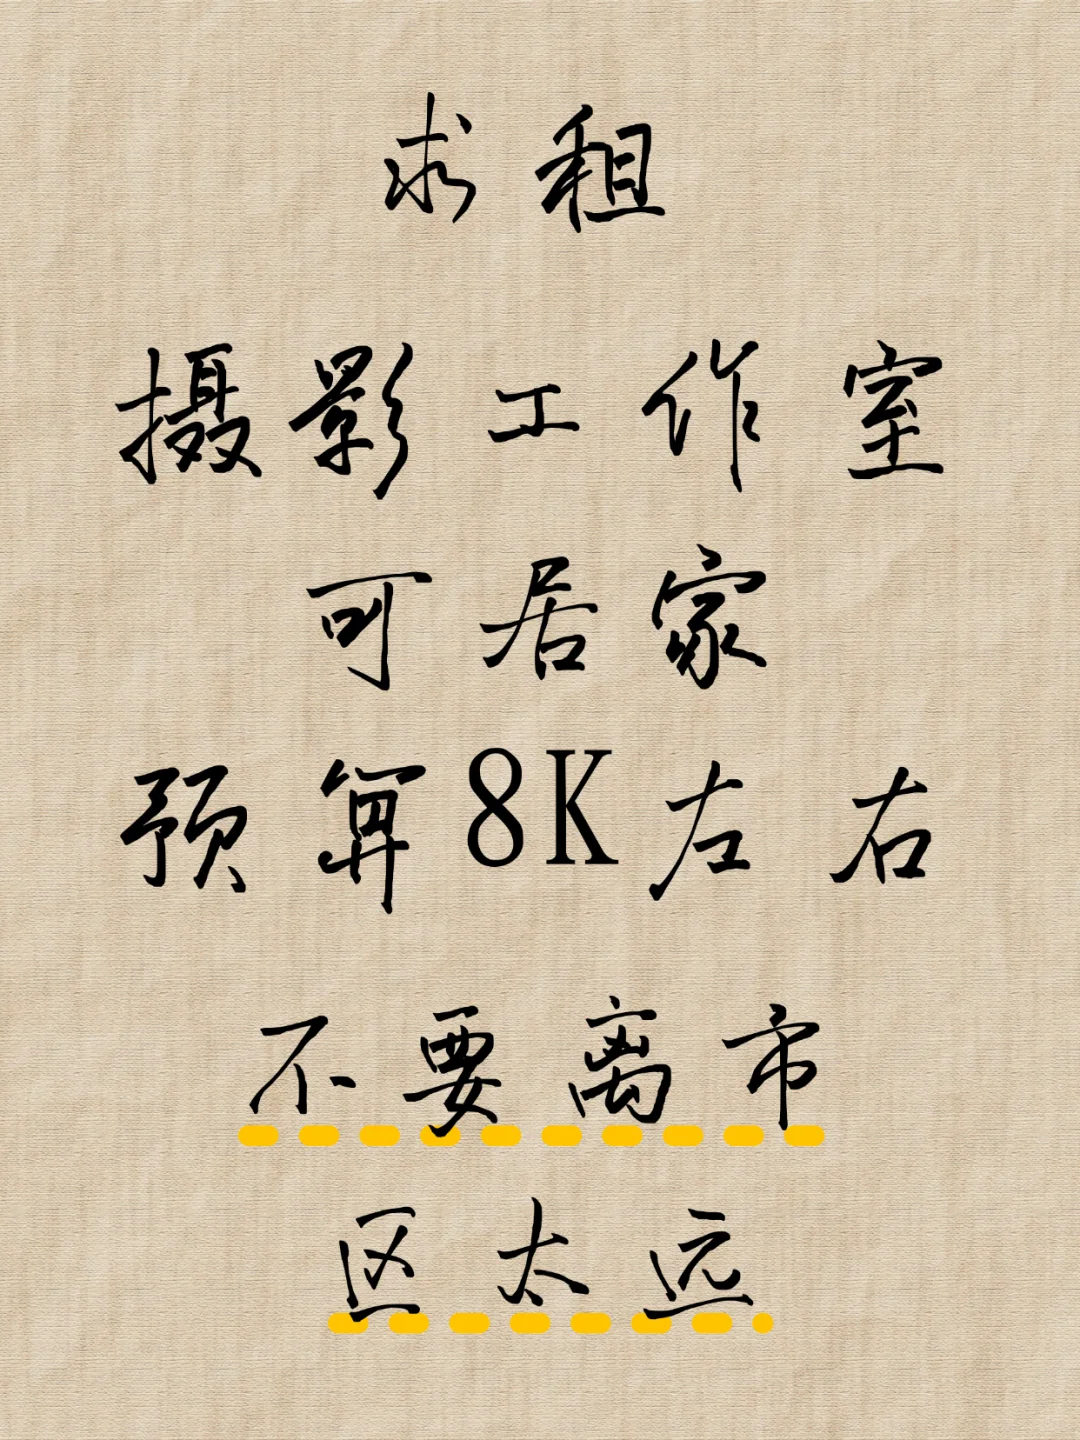 求租
摄影工作室
可居家
预算8K左右
不要离市
区太远